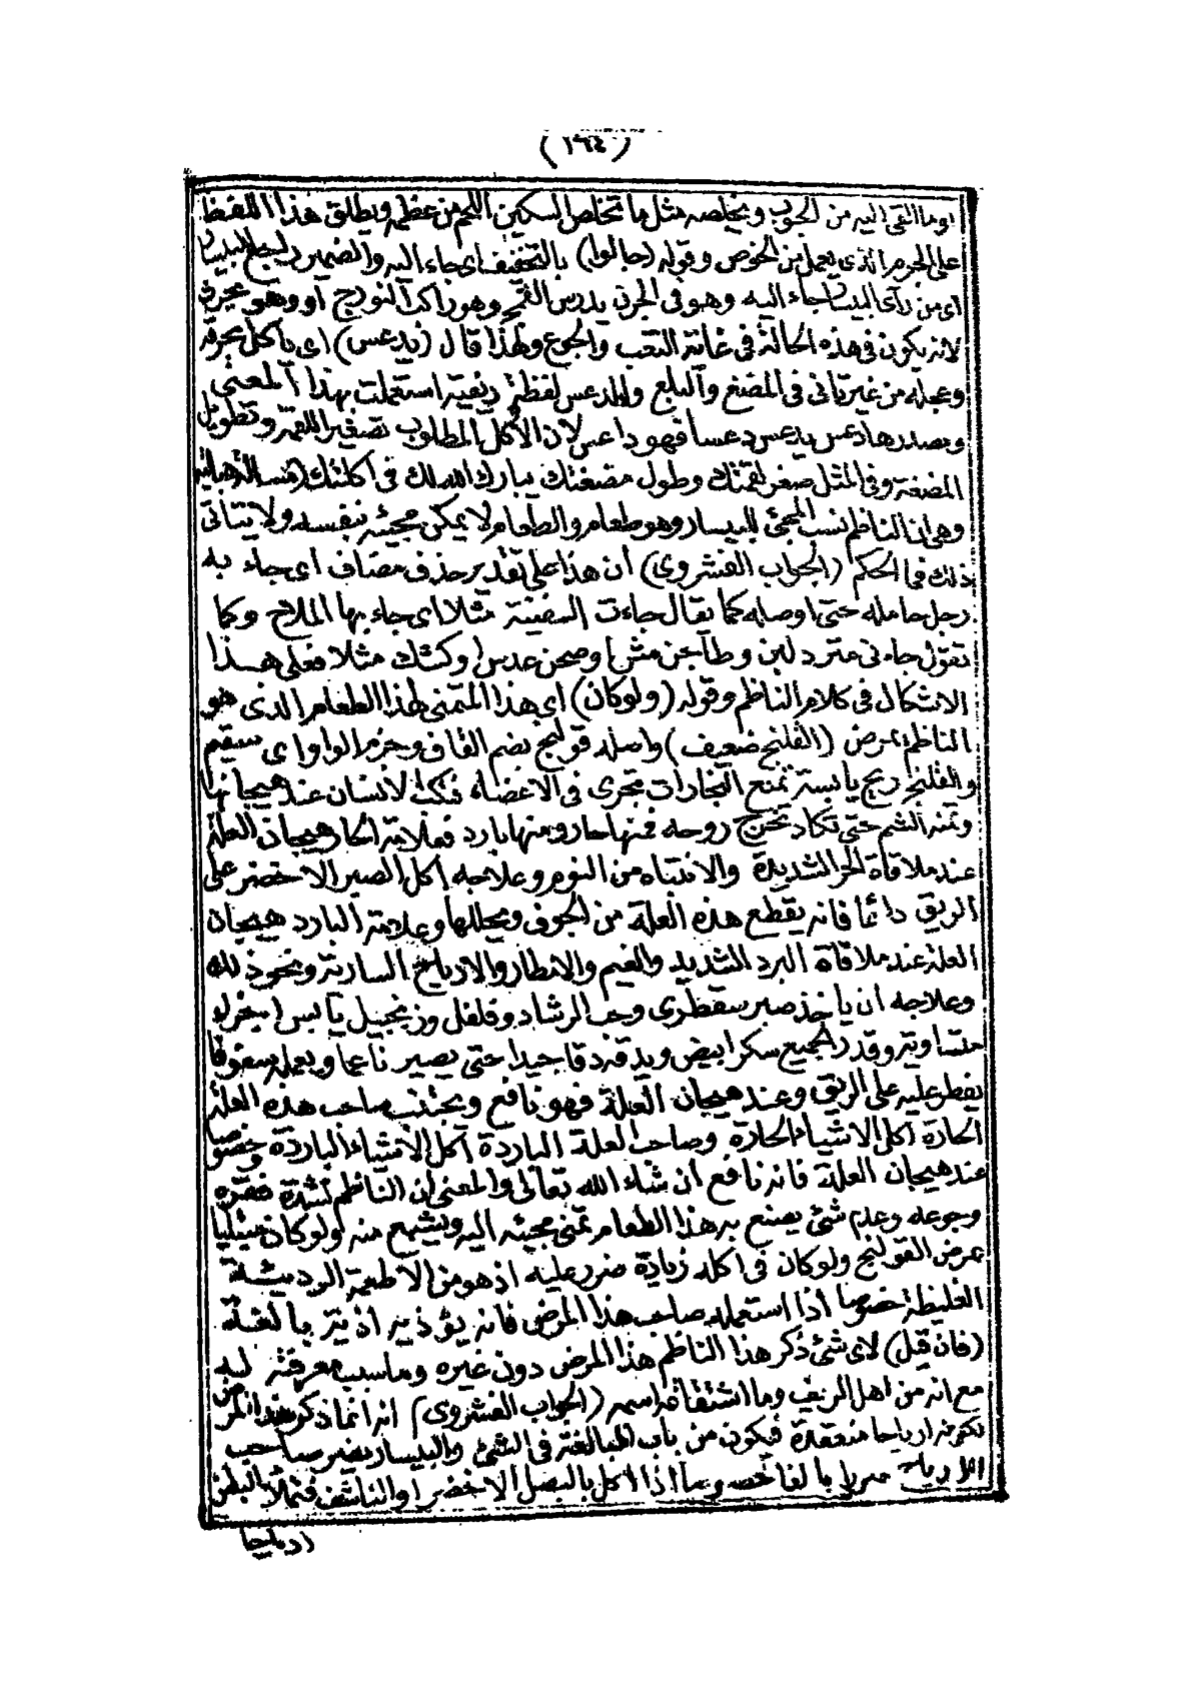 (١٦٤)
او ما القى اليه من الحبوب ويخلصه مثل ما تخلص السكين اللحم من عظمه ويطلق هذا اللفظ
على الجرم الذى يعمل من الخوص وقوله (جا لوا) بالتخفيف اى جاء اليه والضمير البيسار
اى من رأى البيسار جاء اليه وهو فى الجرن يدرس القمح وهو راكب النورج او وهو يحرث
لانه يكون فى هذه الحالة فى غاية التعب والجوع ولهذا قال (يدعس) اى يأكل بحرقه
وعجله من غير تانى فى المضغ والبلع والدعس لفظة ريفية استعملت بهذا المعنى
ومصدرها دعس يدعس دعسا فهو داعس لان الأكل المطلوب تصغير اللقمة وتطويل
المضغة وفى المثل صغر لقمتك وطول مضغتك يبارك الله لك فى اكلتك
وهى ان الناظم نسب المجئ للبيسار وهو طعام والطعام لا يمكن مجيئه بنفسه ولا يتأتى
ذلك فما الحكم (الجواب الفشروى) أن هذا على تقدير حذف مضاف اى جاء به
رجل حامله حتى اوصله كما يقال جاءت السفينة مثلا اى جاء بها الملاح وكما
تقول جاءنى مترد لبن وطاجن مش او صحن عدس او كشك مثلا فعلى هذا
الاشكال فى كلام الناظم وقوله (ولو كان) اى هذا المتمنى لهذا الطعام الذى هو
الناظم بمرض (القلنج ضعيف) واصله قولنج بضم القاف وجزم الواو اى سقيم
والقلنج ريح يابسة تمنع البخارات تجرى فى الاعضاء فتكب الانسان عند هيجانها
وتمنه الشم حتى تكاد تخرج روحه فمنها حار ومنها بارد فعلامة الحار هيجان العلة
عند ملاقاة الحر الشديدة والانتباه من النوم وعلاجه اكل الصبر الاخضر على
الريق دائما فانه يقطع هذه العلة من الجوف ويحللها وعلامة البارد هيجان
العلة عند ملاقاة البرد الشديد والغيم والامطار والارياح السارية ونحو ذلك
وعلاجه ان ياخذ صبر سقطرى وحب الرشاد وفلفل وزنجبيل يابس اجزاء
متساوية وقدر الجميع سكر ابيض ويدقه دقا جيدا حتى يصير ناعما ويعمله سفوفا
يفطر عليه على الريق وعند هيجان العلة فهو نافع ويجتنب صاحب هذه العلة
الحارة اكل الاشياء الحارة وصاحب العلة الباردة اكل الاشياء الباردة وخصوصا
عند هيجان العلة فانه نافع ان شاء الله تعالى والمعنى ان الناظم لشدة فقره
وجوعه وعدم شئ يصنع به هذا الطعام تمنى مجيئه اليه ويشبع منه ولو كان مبتليا
بمرض القولنج ولو كان فى اكله زيادة ضرر عليه اذ هو من الاطعمة الرديئة
الغليظة خصوصا اذا استعمله صاحب هذا المرض فانه يؤذيه اذية بالغة
(فان قيل) لاى شئ ذكر هذا الناظم هذا المرض دون غيره وما سبب معرفته له
مع انه من اهل الريف وما اشتقاق اسمه (الجواب الفشروى) انه انما ذكر هذا المرض
لكونه ارياحا منعقدة فيكون من باب المبالغة فى الشئ والبيسار يضر صاحب
الارياح ضررا بالغا خصوصا اذا اكل بالبصل الاخضر او الناشف فتملأ البطن
ارياحا